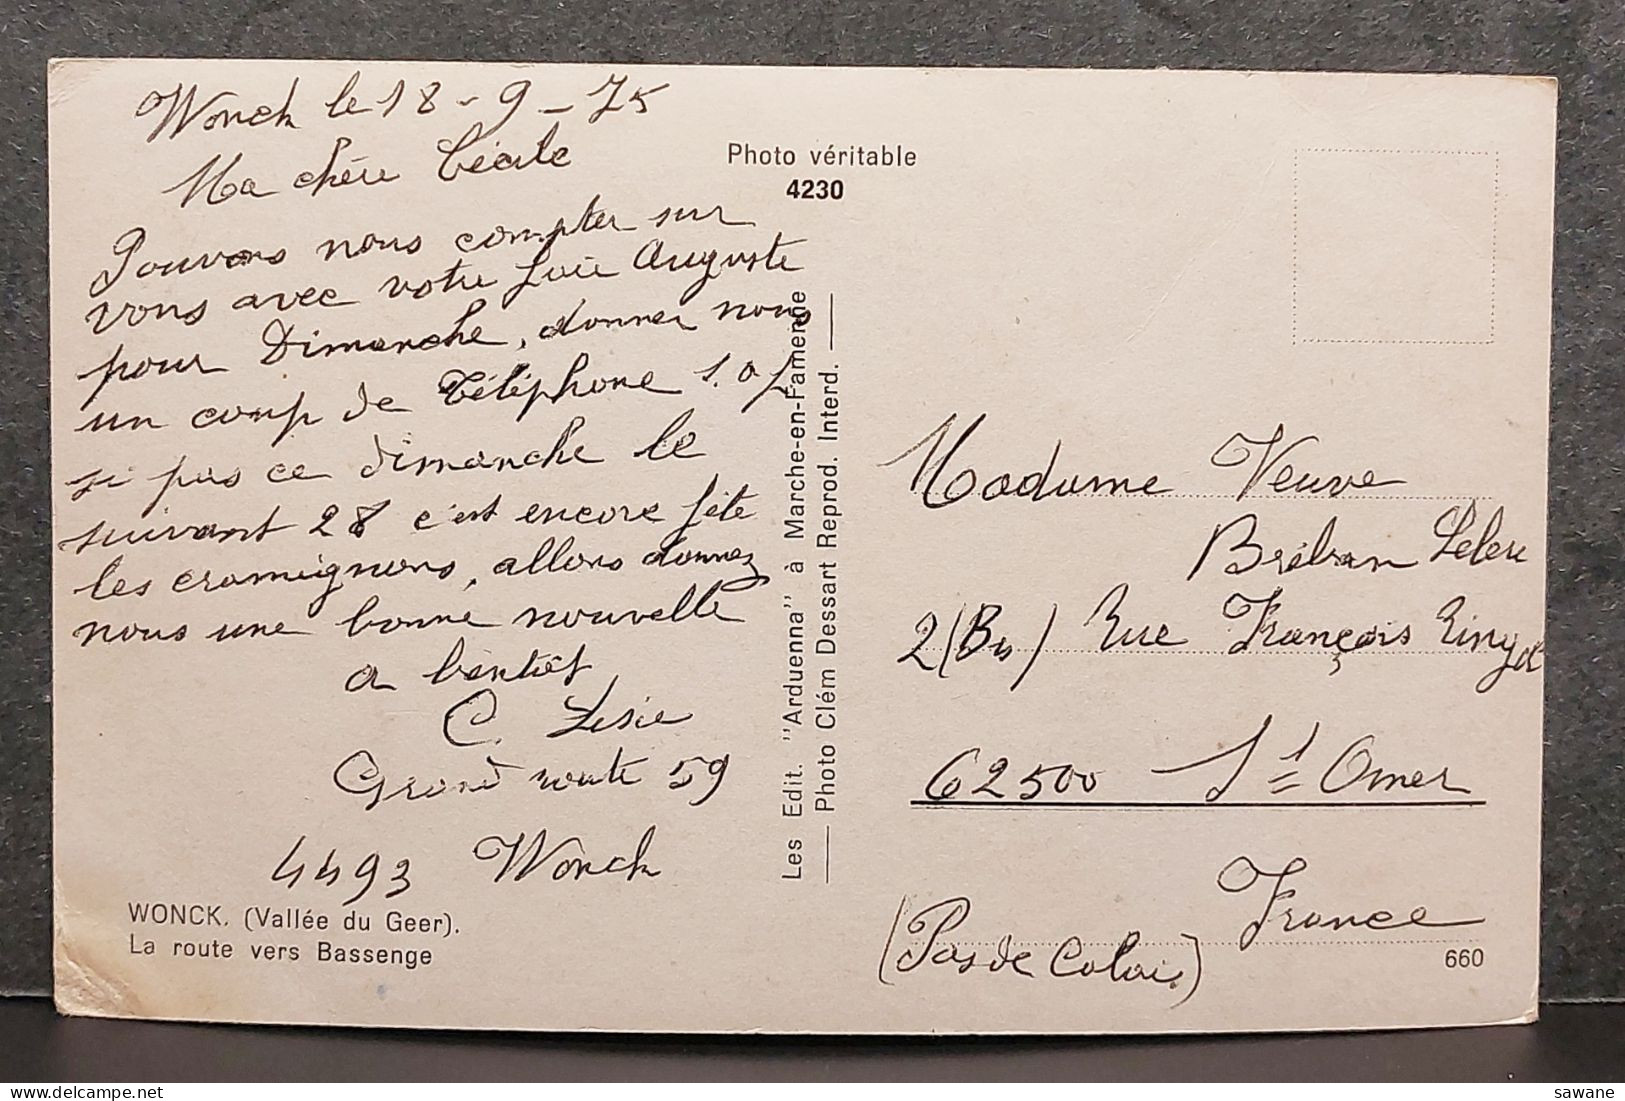 Wonck le 18-9-75
Ma chère Cécile
Pouvons nous compter sur
vous avec votre Auguste
pour Dimanche, donner nous
un coup de Téléphone s.v.p
si pas ce dimanche le
suivant 28 c'est encore fête
les cramignons, allons donnez
nous une bonne nouvelle
a bentôt
C. Lesie
Grand route 59
4493 Wonck
WONCK. (Vallée du Geer).
La route vers Bassenge
Photo véritable
4230
Les Edit. "Arduenna" à Marche-en-Famenne
Photo Clém Dessart Reprod. Interd.
Madame Veuve
Bréban
2 (Bis) Rue François Ringot
62500 St Omer
France
(Pas de Calais)
660
sawane